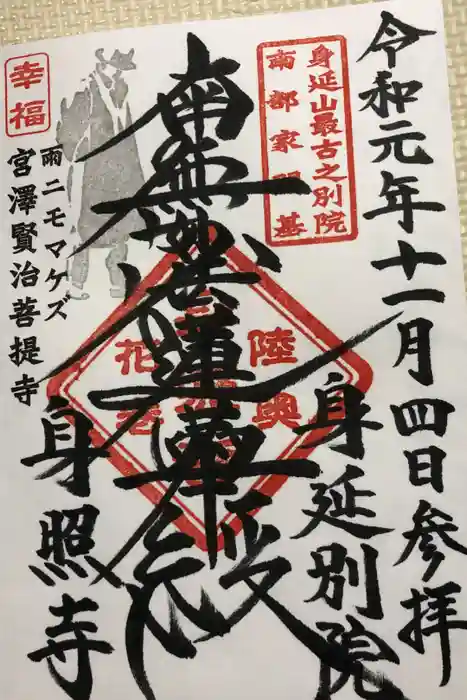 令和元年十一月四日参拝
身延別院
身延山最古之別院
南部家開基
南無妙法蓮華経
陸奥
花巻
幸福
雨ニモマケズ
宮澤賢治菩提寺
身照寺